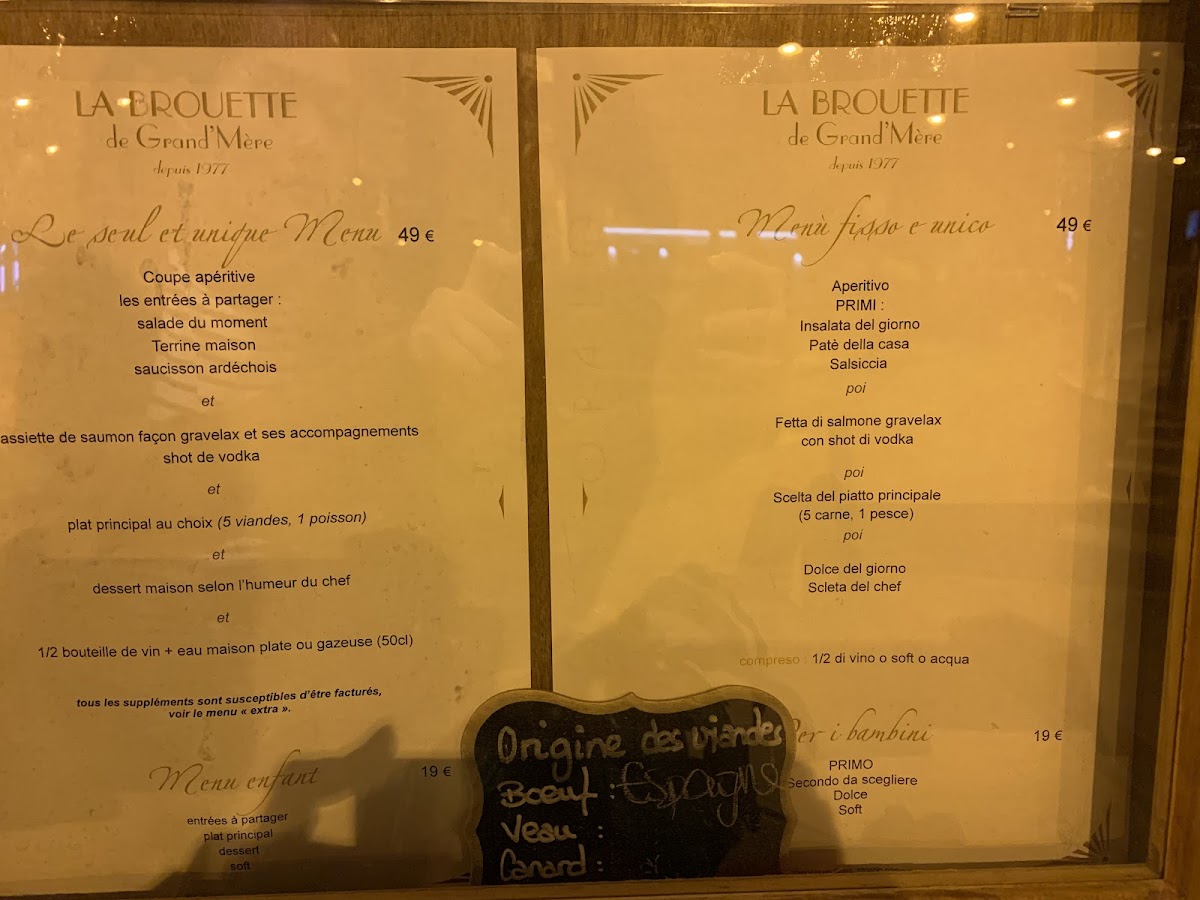 LA BROUETTE
de Grand'Mère
depuis 1977
Le seul et unique Menu 49 €
Coupe apéritive
les entrées à partager :
salade du moment
Terrine maison
saucisson ardéchois
et
assiette de saumon façon gravelax et ses accompagnements
shot de vodka
et
plat principal au choix (5 viandes, 1 poisson)
et
dessert maison selon l'humeur du chef
et
1/2 bouteille de vin + eau maison plate ou gazeuse (50cl)
tous les suppléments sont susceptibles d'être facturés,
voir le menu « extra ».
Menu enfant 19 €
entrées à partager
plat principal
dessert
soft
LA BROUETTE
de Grand'Mère
depuis 1977
Menù fisso e unico 49 €
Aperitivo
PRIMI :
Insalata del giorno
Patè della casa
Salsiccia
poi
Fetta di salmone gravelax
con shot di vodka
poi
Scelta del piatto principale
(5 carne, 1 pesce)
poi
Dolce del giorno
Scleta del chef
compreso : 1/2 di vino o soft o acqua
Per i bambini 19 €
PRIMO
Secondo da scegliere
Dolce
Soft
Origine des viandes
Boeuf : Espagne
Veau :
Canard :